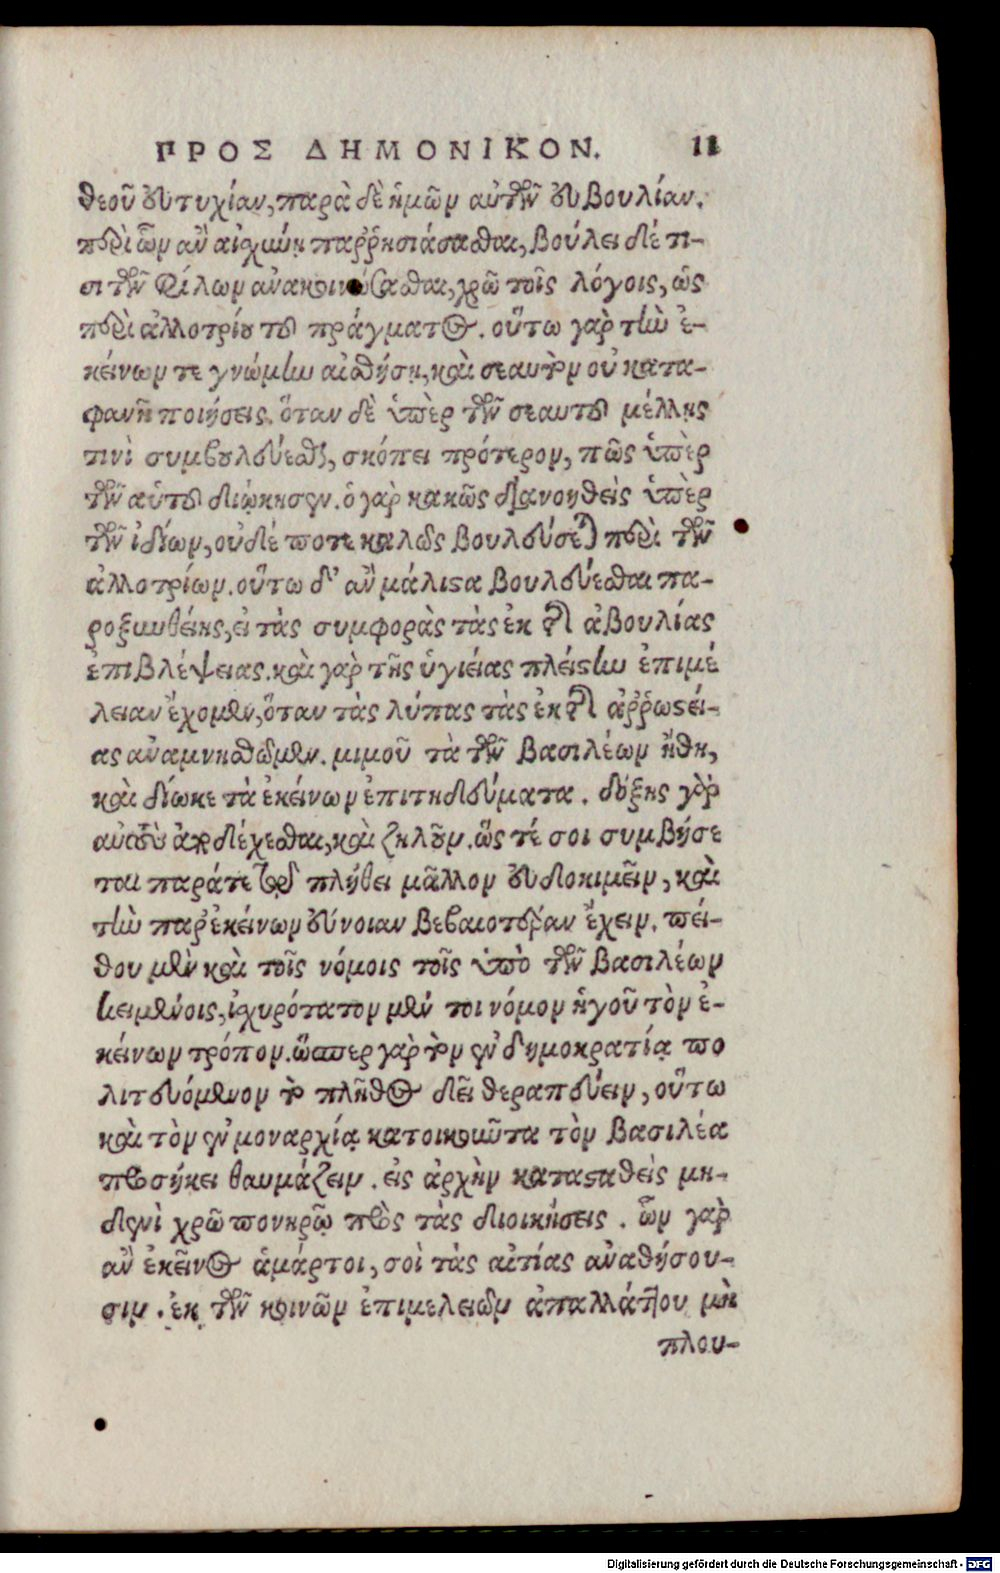 ΠΡΟΣ ΔΗΜΟΝΙΚΟΝ. 11
θεοῦ εὐτυχίαν, παρὰ δὲ ἡμῶν αὐτῶν εὐβουλίαν.
περὶ ὧν ἂν αἰσχύνῃ παῤῥησιάσασθαι, βούλει δέ τι-
σι τῶν φίλων ἀνακοινώσασθαι, χρῶ τοῖς λόγοις, ὡς
περὶ ἀλλοτρίου τοῦ πράγματος. οὕτω γὰρ τὴν ἐ-
κείνων τε γνώμην αἰσθήσῃ, καὶ σεαυτὸν οὐ κατα-
φανῆ ποιήσεις. ὅταν δὲ ὑπὲρ τῶν σεαυτοῦ μέλλῃς
τινὶ συμβουλεύεσθαι, σκόπει πρότερον, πῶς ὑπὲρ
τῶν αὑτοῦ διῴκησεν. ὁ γὰρ κακῶς διανοηθεὶς ὑπὲρ
τῶν ἰδίων, οὐδέ ποτε καλῶς βουλεύσεται περὶ τῶν
ἀλλοτρίων. οὕτω δ' ἂν μάλιστα βουλεύεσθαι πα-
ροξυνθείης, εἰ τὰς συμφορὰς τὰς ἐκ τῆς ἀβουλίας
ἐπιβλέψειας. καὶ γὰρ τῆς ὑγιείας πλείστην ἐπιμέ
λειαν ἔχομεν, ὅταν τὰς λύπας τὰς ἐκ τῆς ἀῤῥωστεί-
ας ἀναμνησθῶμεν. μιμοῦ τὰ τῶν βασιλέων ἤθη,
καὶ δίωκε τὰ ἐκείνων ἐπιτηδεύματα. δόξῃς γὰρ
αὐτοὺς ἀποδέχεσθαι, καὶ ζηλοῦν. ὥς τέ σοι συμβήσε
ται παρά τε τῷ πλήθει μᾶλλον εὐδοκιμεῖν, καὶ
τὴν παρ' ἐκείνων εὔνοιαν βεβαιοτέραν ἔχειν. πεί-
θου μὲν καὶ τοῖς νόμοις τοῖς ὑπὸ τῶν βασιλέων
κειμένοις, ἰσχυρότατον μέν τοι νόμον ἡγοῦ τὸν ἐ-
κείνων τρόπον. ὥσπερ γὰρ τὸν ἐν δημοκρατίᾳ πο
λιτευόμενον τὸ πλῆθος δεῖ θεραπεύειν, οὕτω
καὶ τὸν ἐν μοναρχίᾳ κατοικοῦντα τὸν βασιλέα
προσήκει θαυμάζειν. εἰς ἀρχὴν κατασταθεὶς μη-
δενὶ χρῶ πονηρῷ πρὸς τὰς διοικήσεις. ὧν γὰρ
ἂν ἐκεῖνος ἁμάρτοι, σοὶ τὰς αἰτίας ἀναθήσου-
σιν. ἐκ τῶν κοινῶν ἐπιμελειῶν ἀπαλλάττου μὴ
πλου-
Digitalisierung gefördert durch die Deutsche Forschungsgemeinschaft - DFG